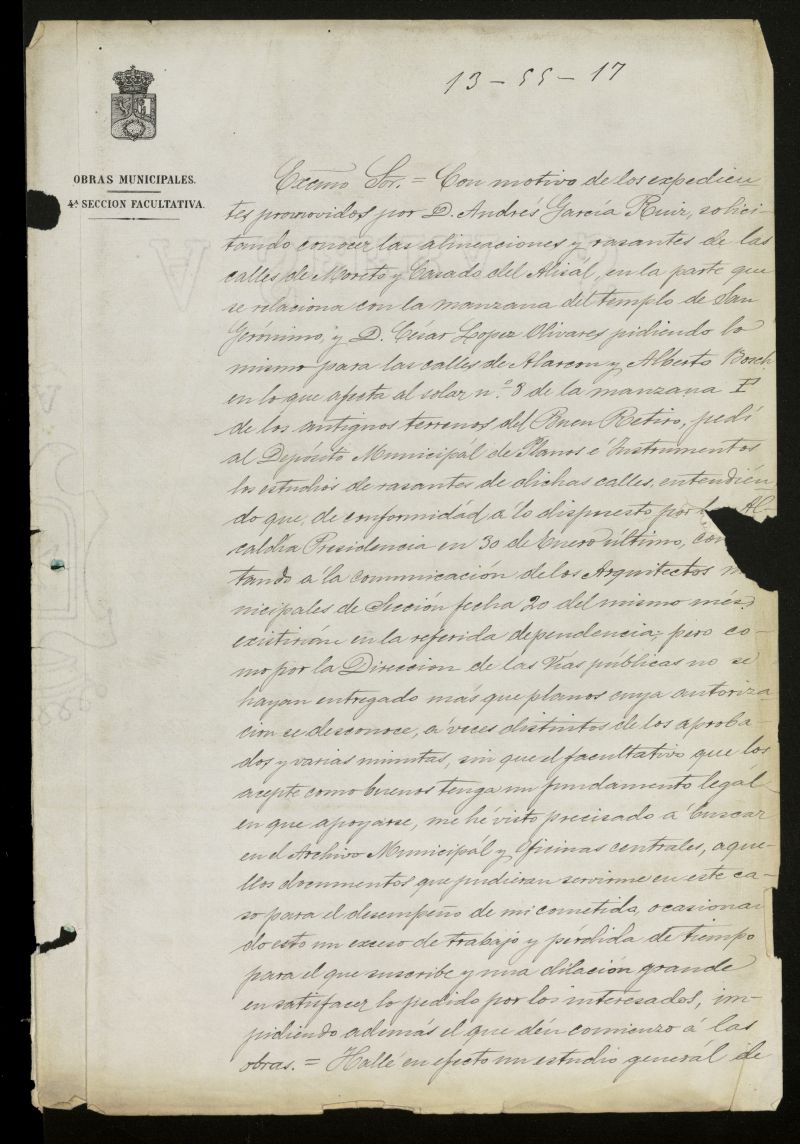 13 – 55 – 17
OBRAS MUNICIPALES.
4ª SECCION FACULTATIVA.
Excmo Sor. = Con motivo de los expedien
tes promovidos por D. Andrés García Ruiz, solici-
tando conocer las alineaciones y rasantes de las
calles de Moreto y Casado del Alisal, en la parte que
se relaciona con la manzana del templo de San
Gerónimo, y D. César Lopez Olivares pidiendo lo
mismo para las calles de Alarcon y Alberto Bosch
en lo que afecta al solar nº 8 de la manzana
de los antiguos terrenos del Buen Retiro, pedí
al Depósito Municipál de Planos é Instrumentos
los estudios de rasantes de dichas calles, entendién
do que, de conformidád á lo dispuesto por la Al-
caldía Presidencia en 30 de Enero último, con
tando á la comunicación de los Arquitectos
nicipales de Sección fecha 20 del mismo més,
existirian en la referida dependencia; pero co-
mo por la Direccion de las Vías públicas no se
hayan entregado más que planos cuya autoriza-
cion se desconoce, á veces distintos de los aproba-
dos y varias minutas, sin que el facultativo que los
acepte como buenos tenga un fundamento legal
en que apoyarse, me hé visto precisado a buscar
en el Archivo Municipál y oficinas centrales, aque-
llos documentos que pudieran servirme en este ca-
so para el desempeño de mi cometido, ocasionan
do esto un exceso de trabajo y pérdida de tiempo
para el que suscribe y una dilación grande
en satisfacer lo pedido por los interesados, im-
pidiendo además el que dén comienzo á las
obras. = Hallé en efecto un estudio generál de